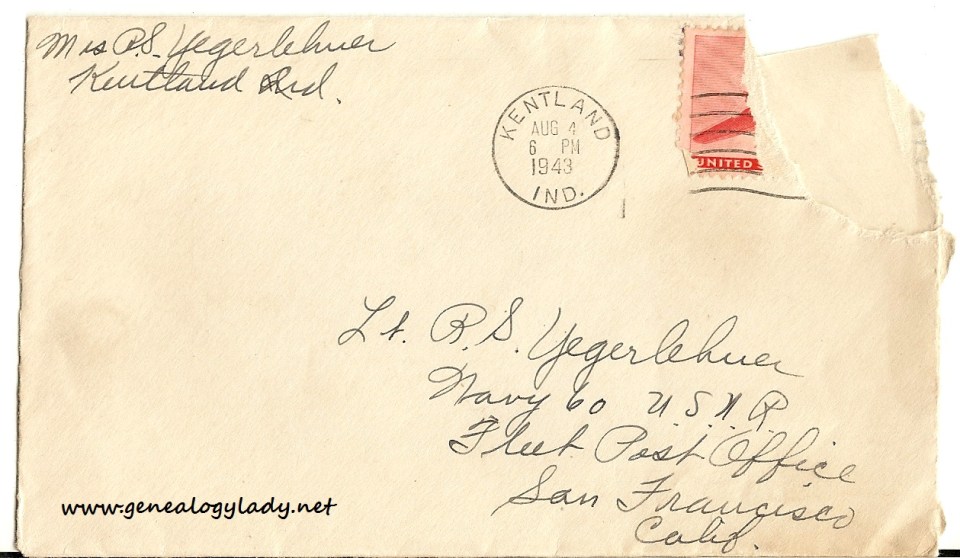 Mrs R.S. Yegerlehner
Kentland Ind.
KENTLAND
AUG 4
6 PM
1943
IND.
UNITED
Lt. R. S. Yegerlehner
Navy 60 U.S.N.R.
Fleet Post Office
San Francisco
Calif.
www.genealogylady.net